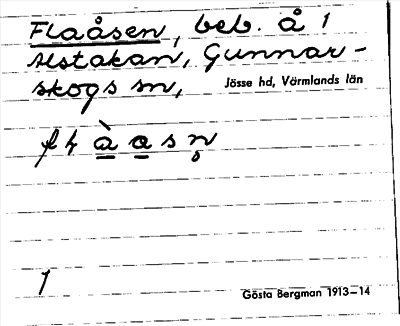 Flaåsen, beb. å 1
Ålstakan, Gunnar-
skogs sn,
Jösse hd, Värmlands län
1
Gösta Bergman 1913–14